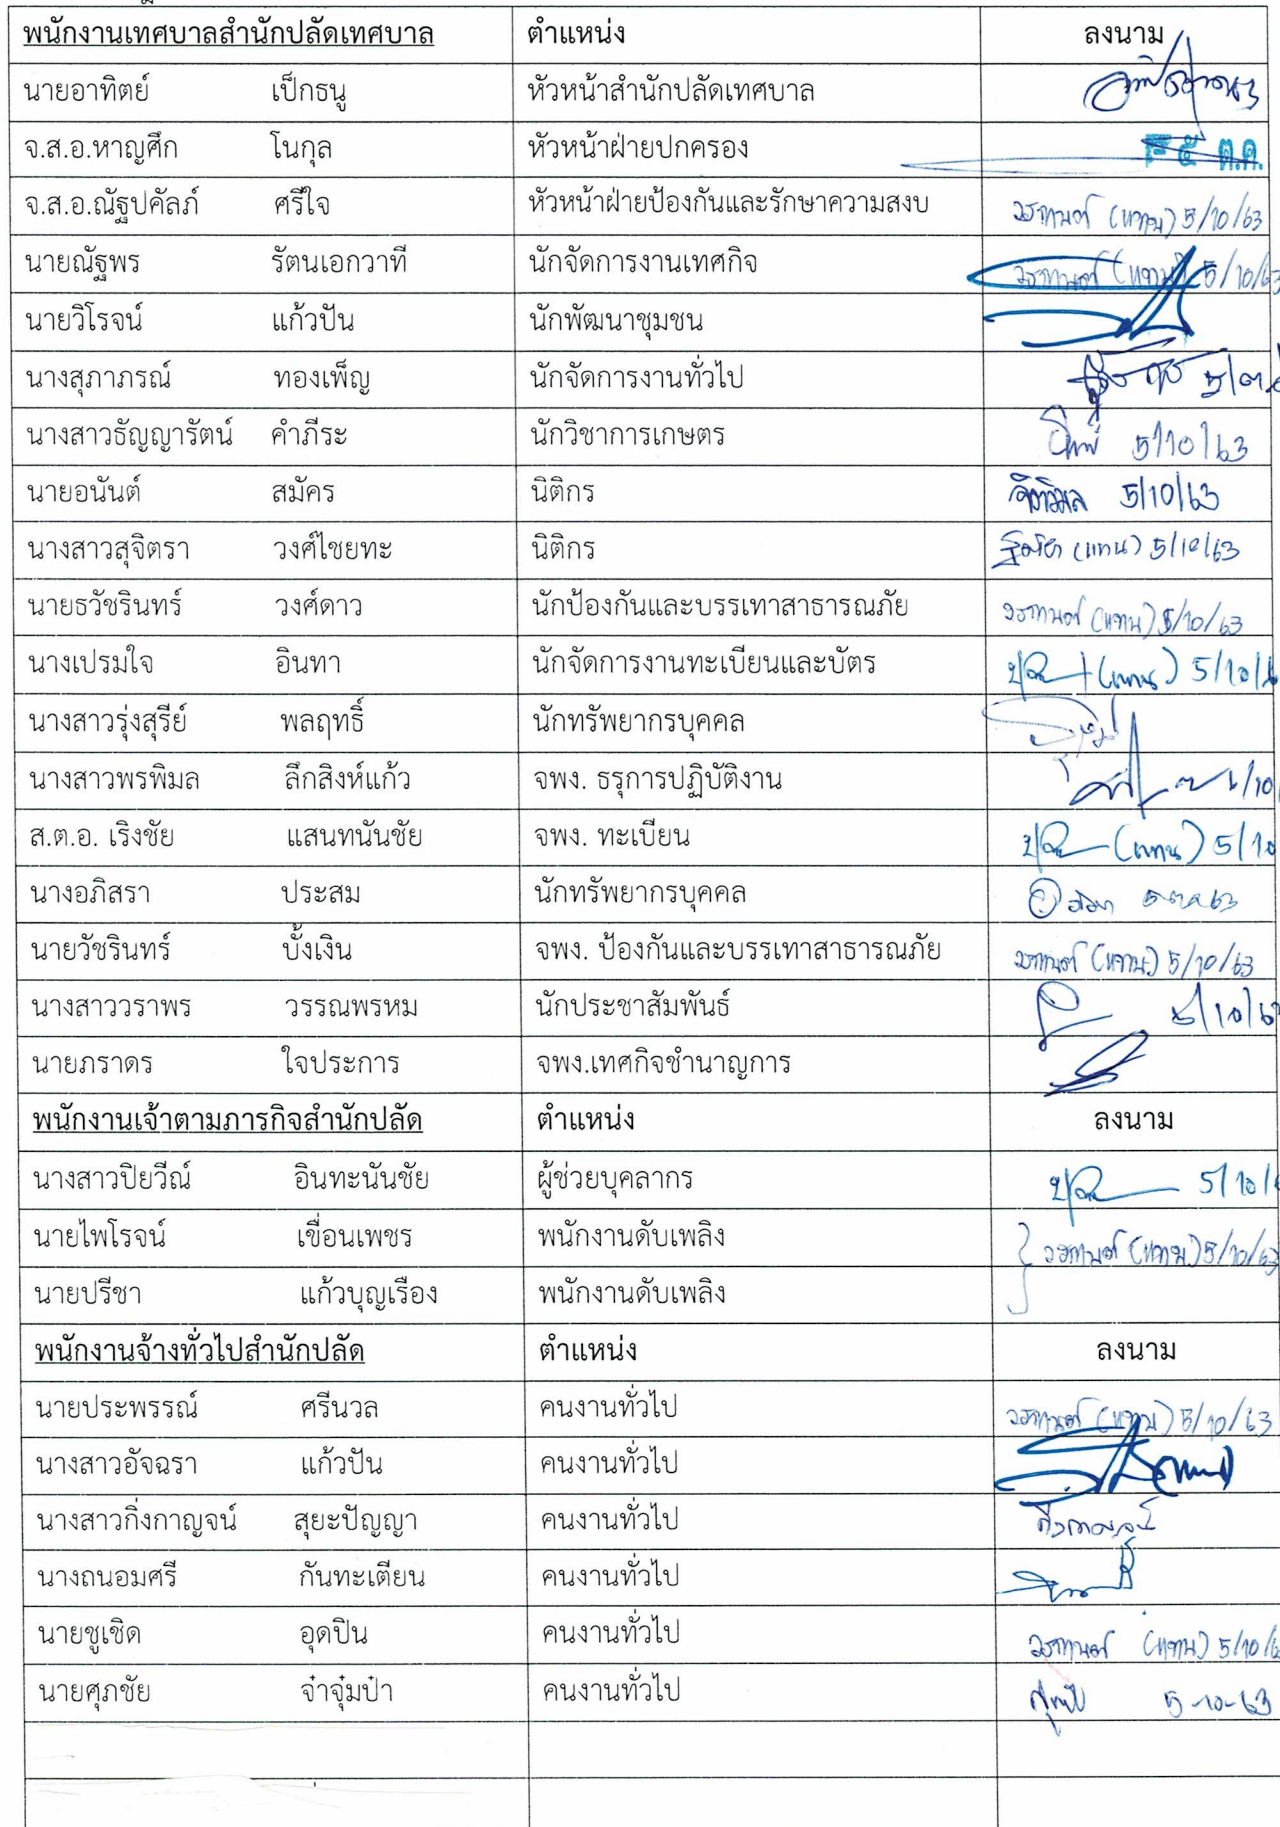 พนักงานเทศบาลสำนักปลัดเทศบาล ตำแหน่ง ลงนาม
นายอาทิตย์ เป็กธนู หัวหน้าสำนักปลัดเทศบาล
จ.ส.อ.หาญศึก โนกุล หัวหน้าฝ่ายปกครอง ๕ ต.ค.
จ.ส.อ.ณัฐปคัลภ์ ศรีใจ หัวหน้าฝ่ายป้องกันและรักษาความสงบ วรกานต์ (แทน) 5/10/63
นายณัฐพร รัตนเอกวาที นักจัดการงานเทศกิจ วรกานต์ (แทน) 5/10/63
นายวิโรจน์ แก้วปัน นักพัฒนาชุมชน
นางสุภาภรณ์ ทองเพ็ญ นักจัดการงานทั่วไป
นางสาวธัญญารัตน์ คำภีระ นักวิชาการเกษตร 5/10/63
นายอนันต์ สมัคร นิติกร 5/10/63
นางสาวสุจิตรา วงศ์ไชยทะ นิติกร (แทน) 5/10/63
นายธวัชรินทร์ วงศ์ดาว นักป้องกันและบรรเทาสาธารณภัย วรกานต์ (แทน) 5/10/63
นางเปรมใจ อินทา นักจัดการงานทะเบียนและบัตร (แทน) 5/10/
นางสาวรุ่งสุรีย์ พลฤทธิ์ นักทรัพยากรบุคคล
นางสาวพรพิมล ลึกสิงห์แก้ว จพง. ธุรการปฏิบัติงาน
ส.ต.อ. เริงชัย แสนทนันชัย จพง. ทะเบียน (แทน) 5/10
นางอภิสรา ประสม นักทรัพยากรบุคคล
นายวัชรินทร์ บั้งเงิน จพง. ป้องกันและบรรเทาสาธารณภัย วรกานต์ (แทน) 5/10/63
นางสาววราพร วรรณพรหม นักประชาสัมพันธ์ 5/10/6
นายภราดร ใจประการ จพง.เทศกิจชำนาญการ
พนักงานเจ้าตามภารกิจสำนักปลัด ตำแหน่ง ลงนาม
นางสาวปิยวีณ์ อินทะนันชัย ผู้ช่วยบุคลากร 5/10/
นายไพโรจน์ เขื่อนเพชร พนักงานดับเพลิง วรกานต์ (แทน) 5/10/63
นายปรีชา แก้วบุญเรือง พนักงานดับเพลิง
พนักงานจ้างทั่วไปสำนักปลัด ตำแหน่ง ลงนาม
นายประพรรณ์ ศรีนวล คนงานทั่วไป วรกานต์ (แทน) 5/10/63
นางสาวอัจฉรา แก้วปัน คนงานทั่วไป
นางสาวกิ่งกาญจน์ สุยะปัญญา คนงานทั่วไป กิ่งกาญจน์
นางถนอมศรี กันทะเตียน คนงานทั่วไป
นายชูเชิด อุดปิน คนงานทั่วไป วรกานต์ (แทน) 5/10/6
นายศุภชัย จำจุ๋มป๋า คนงานทั่วไป 5-10-63